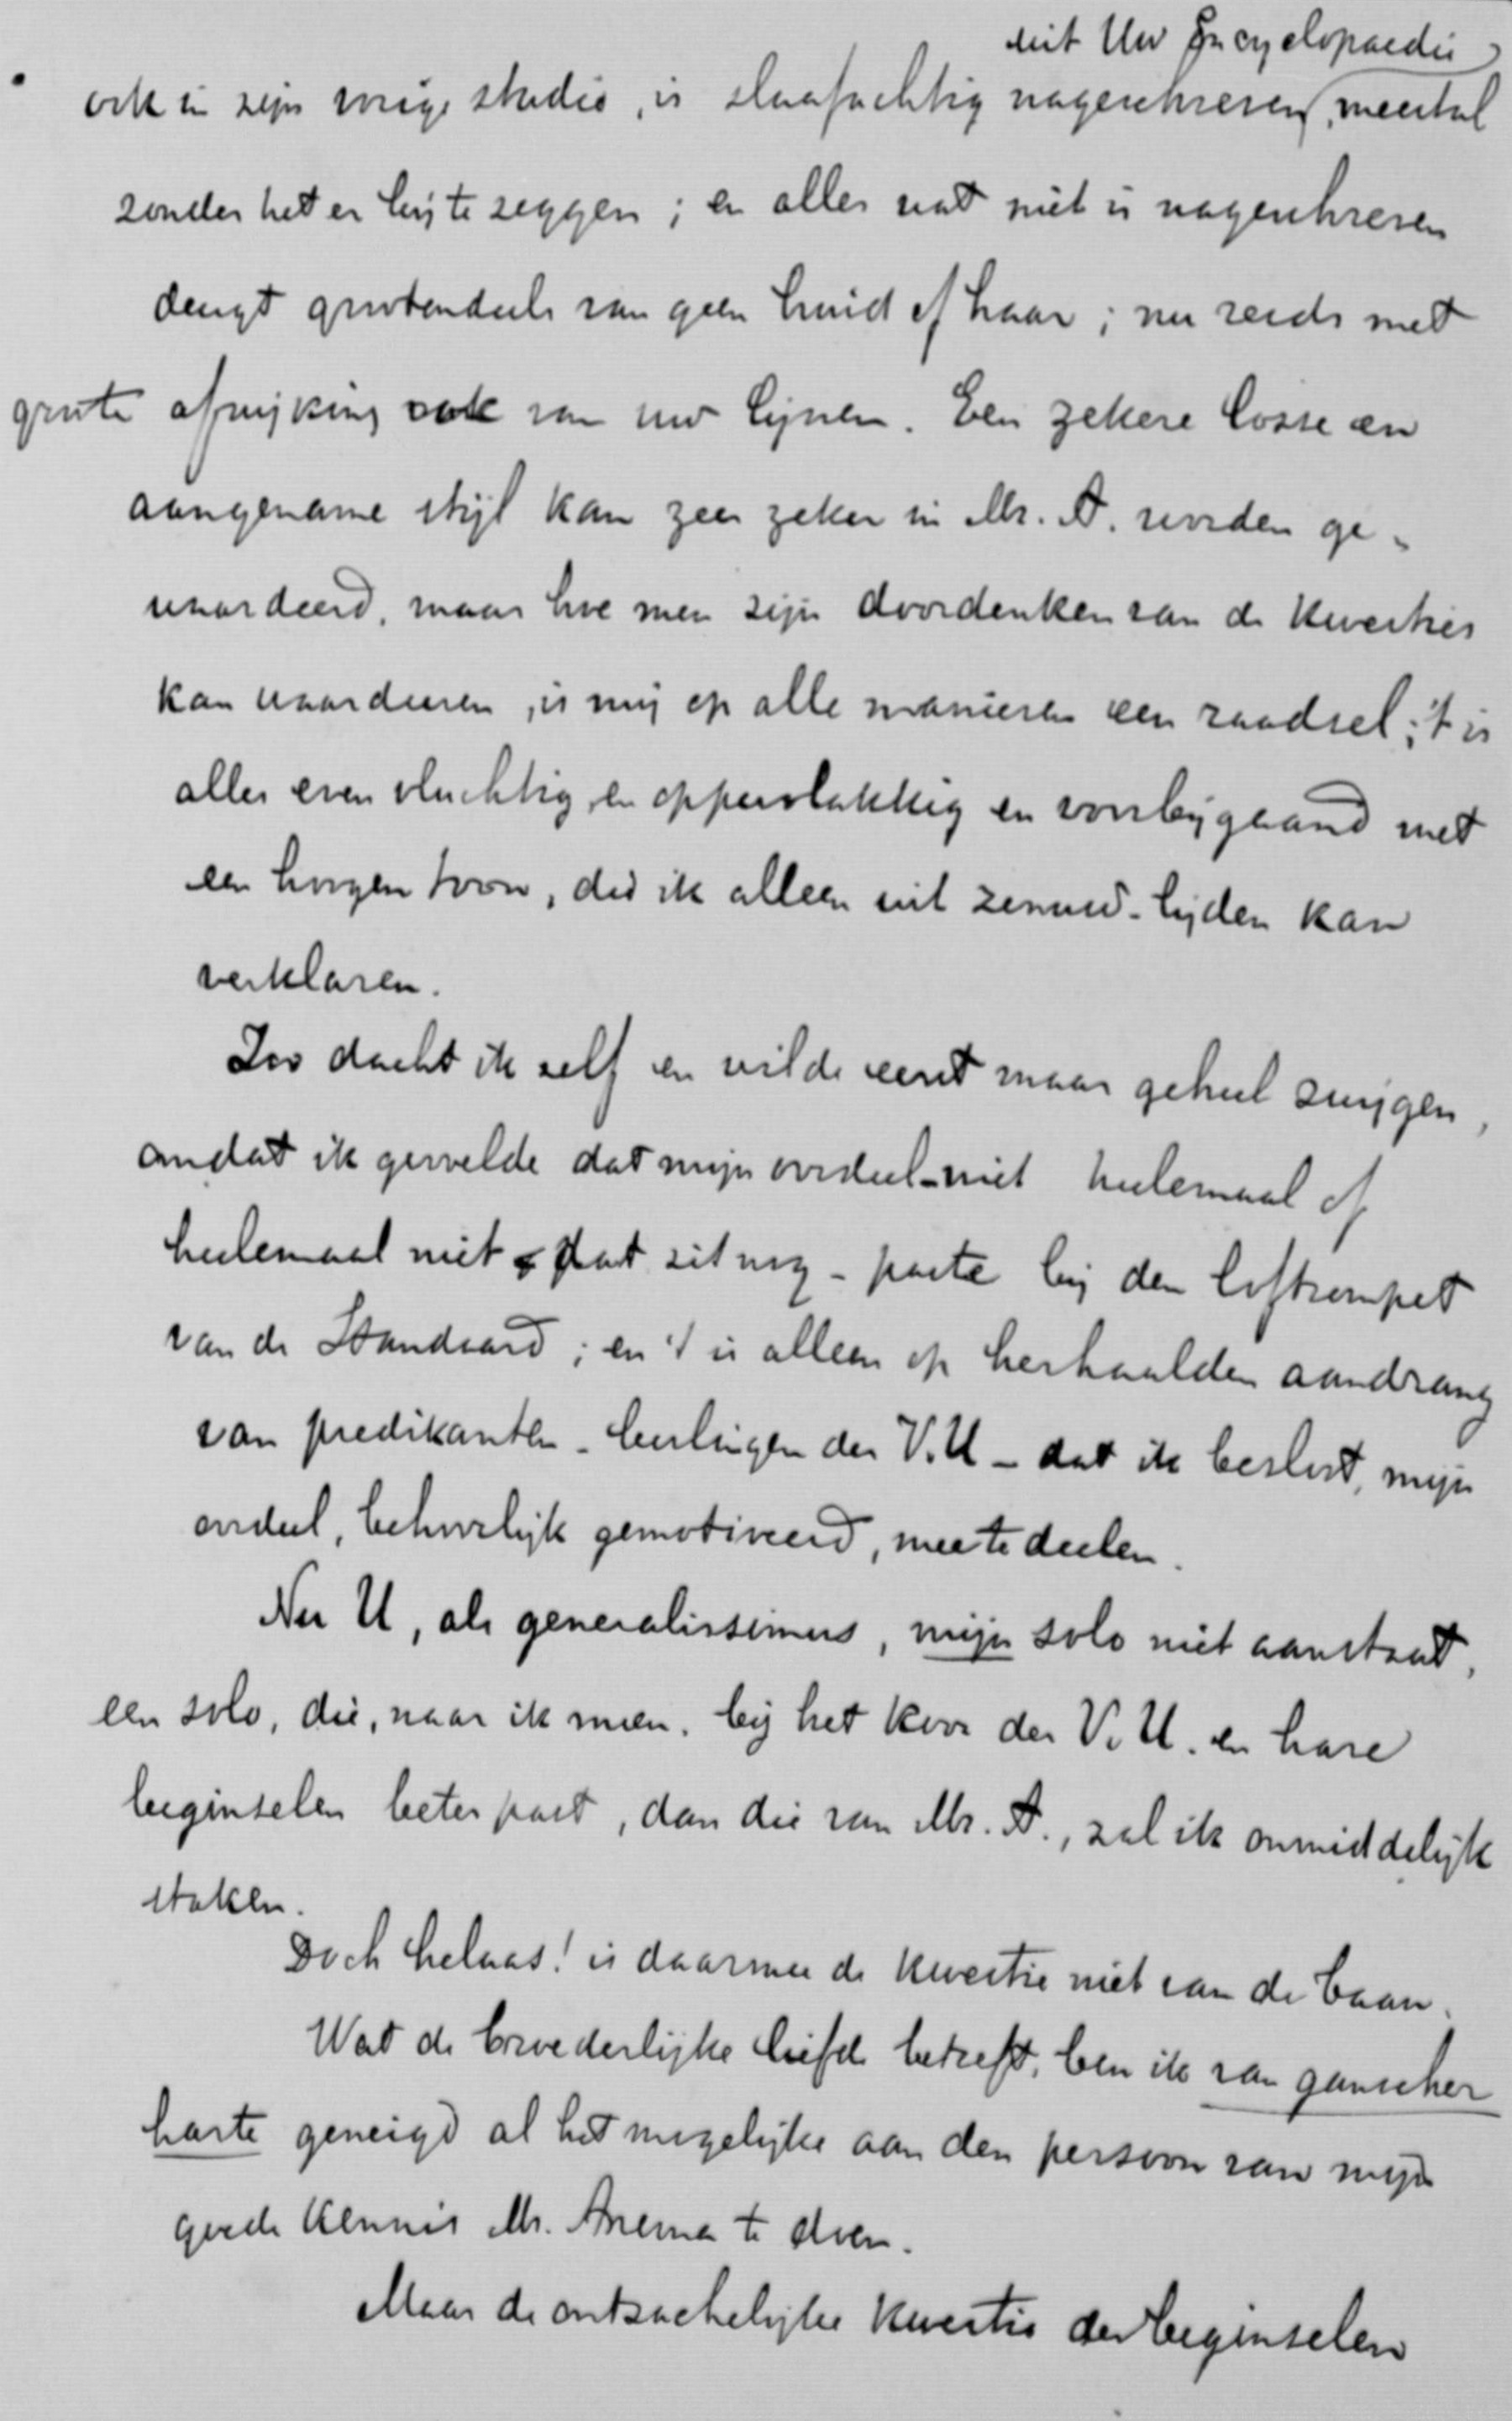 uit Uw Encyclopaedie
ook in zijn vorige studie, is slaafachtig nageschreven, meestal
zonder het er bij te zeggen; en alles wat niet is nageschreven
deugt grootendeels van geen huid of haar; nu reeds met
groote afwijking ook van uw lijnen. Een zekere losse en
aangename stijl kan zeer zeker in Mr. A. worden ge-
waardeerd, maar hoe men zijn doordenken van de kwesties
kan waardeeren, is mij op alle manieren een raadsel; 't is
alles even vluchtig en oppervlakkig en voorbijgaand met
een hoogen toon, die ik alleen uit zenuw-lijden kan
verklaren.
Zoo dacht ik zelf en wilde eerst maar geheel zwijgen,
omdat ik gevoelde dat mijn oordeel - niet heelemaal of
heelemaal niet dat zit nog - paste bij den loftrompet
van de Standaard; en 't is alleen op herhaalden aandrang
van predikanten - leerlingen der V.U - dat ik besloot, mijn
oordeel, behoorlijk gemotiveerd, mee te deelen.
Nu U, als generalissimus, mijn solo niet aanstaat,
een solo, die, naar ik meen, bij het koor der V.U. en hare
beginselen beter past, dan die van Mr. A., zal ik onmiddelijk
staken.
Doch helaas! is daarmee de kwestie niet van de baan.
Wat de broederlijke liefde betreft, ben ik van ganscher
harte geneigd al het mogelijke aan den persoon van mijn
goede kennis Mr. Anema te doen.
Maar de ontzachelijke kwestie der beginselen